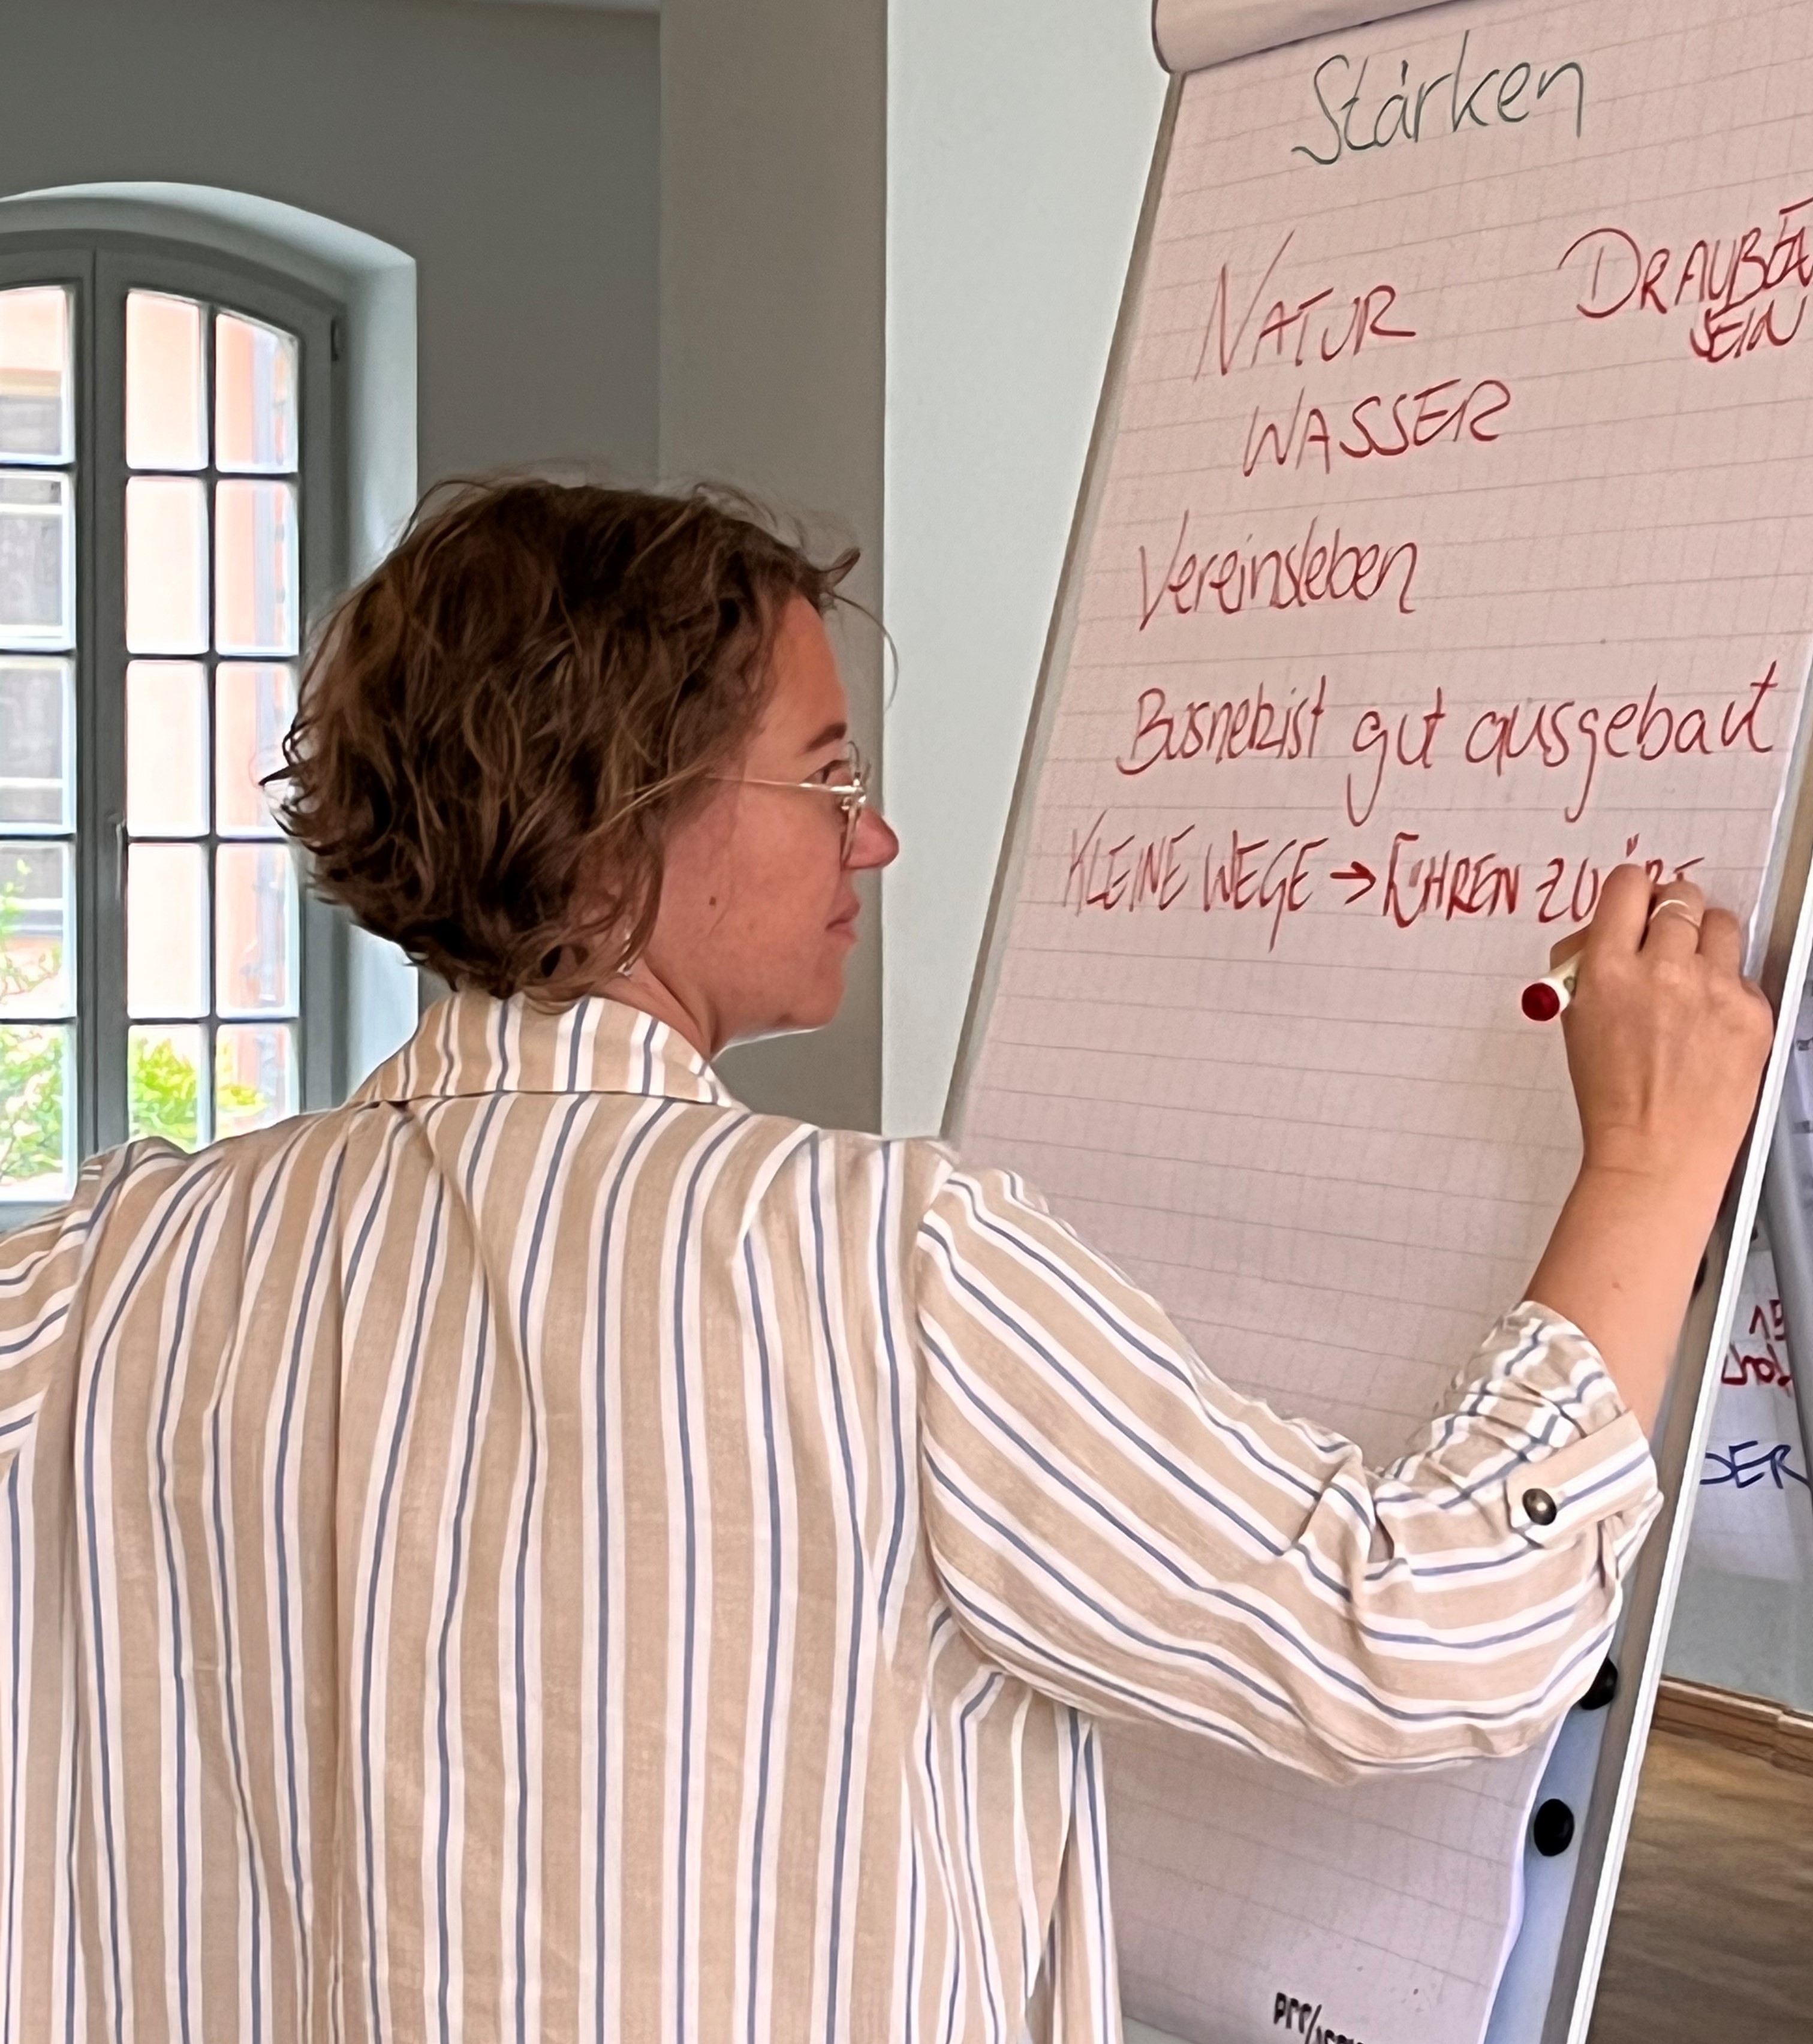 Stärken
NATUR
DRAUßEN
SEIN
WASSER
Vereinsleben
Busnetz ist gut ausgebaut
KLEINE WEGE → FÜHREN ZU
15
DER